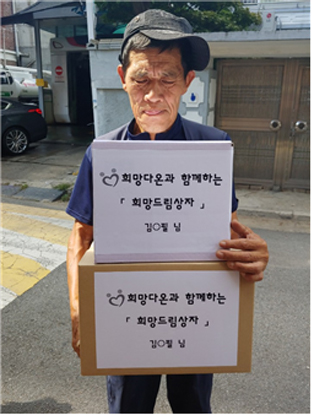 희망다온과 함께하는
「 희망드림상자 」
김○필 님
희망다온과 함께하는
「 희망드림상자 」
김○필 님